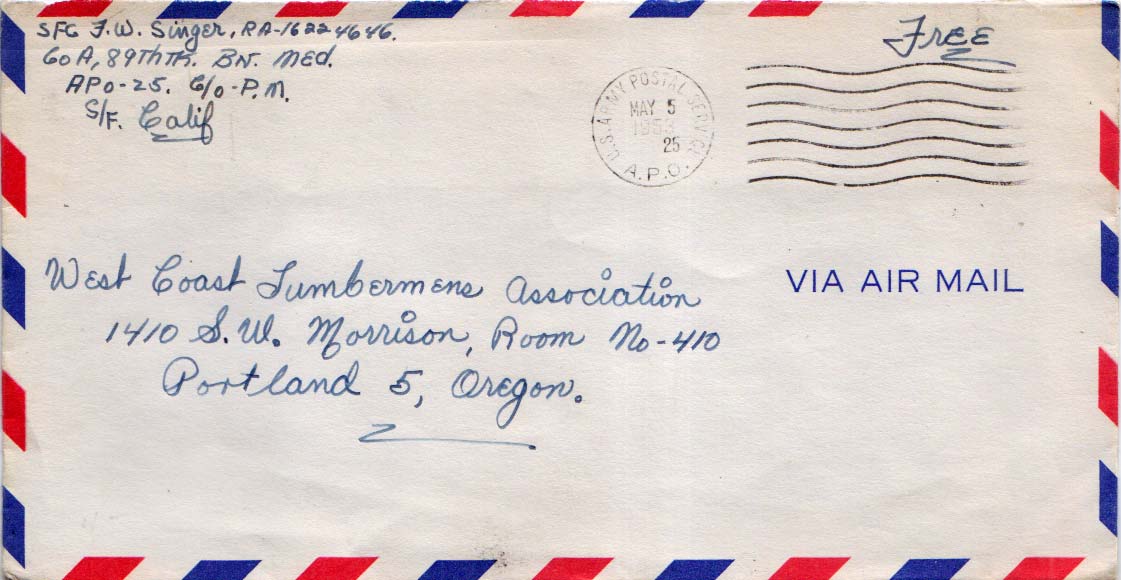 SFC F.W. Singer, RA-16224646.
Co A, 89th Tk. BN. Med.
APO-25. C/o-P.M.
S/F. Calif
Free
U.S. ARMY POSTAL SERVICE
MAY 5
1953
25
A.P.O.
VIA AIR MAIL
West Coast Lumbermens Association
1410 S.W. Morrison, Room No-410
Portland 5, Oregon.